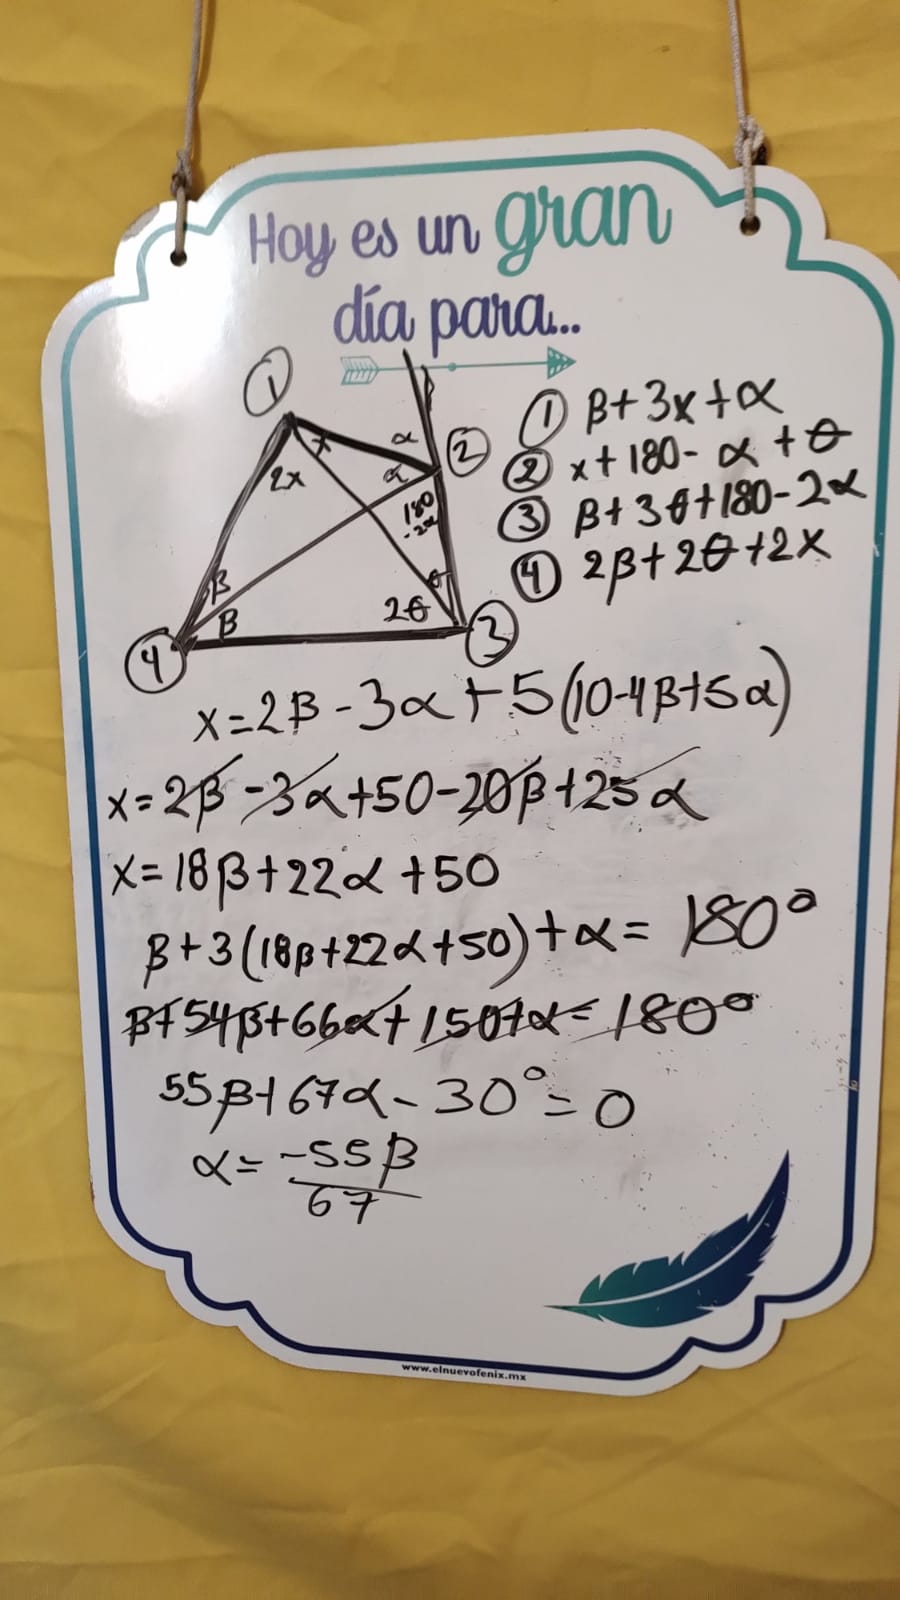 Hoy es un gran
día para...
1
x
α
2
2x
α
180
-2α
β
θ
β
2θ
4
3
① β+3x+α
② x+180-α+θ
③ β+3θ+180-2α
④ 2β+2θ+2x
x=2β-3α+5(10-4β+5α)
x=2β-3α+50-20β+25α
x=18β+22α+50
β+3(18β+22α+50)+α=180°
β+54β+66α+150+α=180°
55β+67α-30°=0
α=-55β
67
www.elnuevofenix.mx